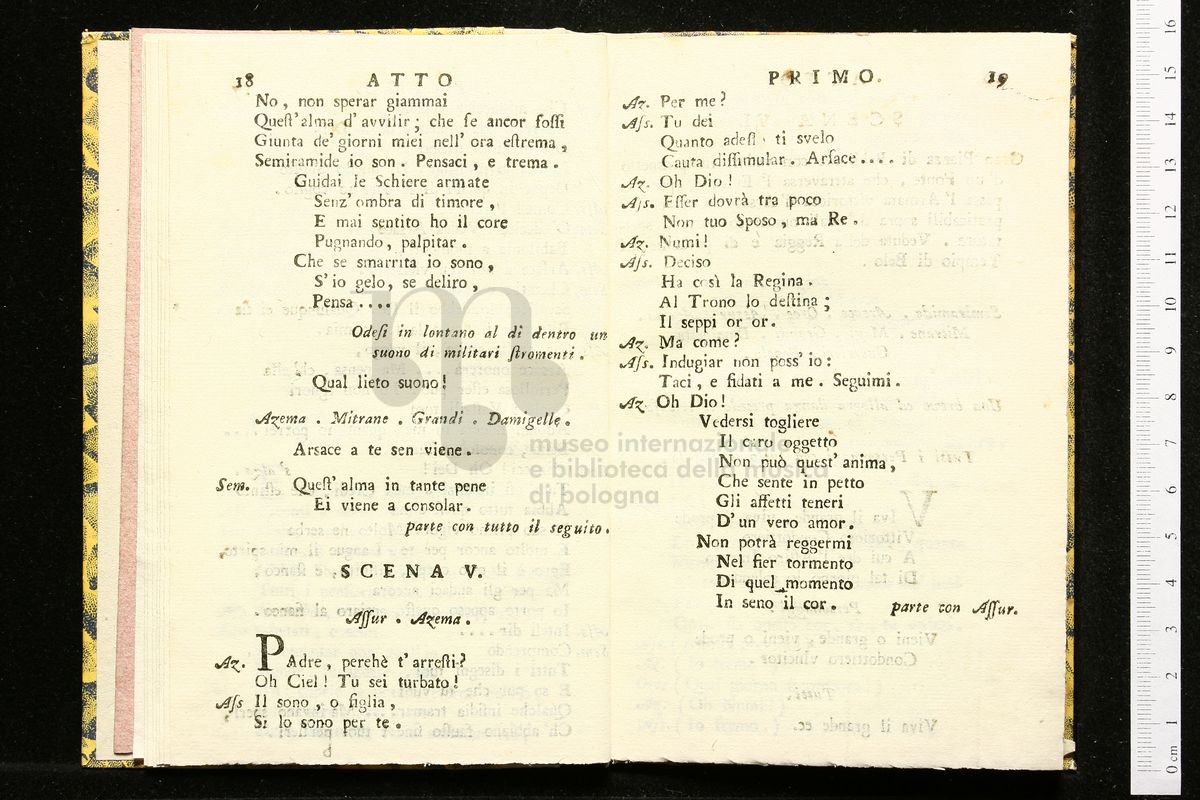 18 ATTO
No, non sperar giammai
Quest'alma d'avvilir; che se ancor fossi
Giunta de' giorni miei nell' ora estrema,
Semiramide io son. Pensaci, e trema.
Guidai le Schiere armate
Senz' ombra di timore,
E mai sentito ho il core
Pugnando, palpitar.
Che se smarrita io sono,
S'io gelo, se deliro,
Pensa....
Odesi in lontano al di dentro un
suono di militari stromenti.
Qual lieto suono!
Azema. Mitrane. Grandi. Damigelle.
Arsace a te sen viene.
Sem. Quest' alma in tante pene
Ei viene a consolar.
parte con tutto il seguito.
SCENA V.
Assur. Azema.
Az. PAdre, perchè t'arresti?
Oh Ciel! Tu sei turbato!
Ass Il sono, o figlia,
Si lo sono per te.
PRIMO. 19
Az. Per me?
Ass. Tu dei
Quanto adess ti svelo
Cauta dissimular. Arsace....
Az. Oh Dio!
Ass. Esser dovrà tra poco
Non tuo Sposo, ma Re.
Az. Numi!
Ass. Deciso
Ha così la Regina.
Al Trono lo destina;
Il seppi or or.
Az. Ma come?
Ass. Indugiar non poss' io:
Taci, e fidati a me. Seguimi.
Az. Oh Dio!
Vedersi togliere
Il caro oggetto
Non può quest' anima,
Che sente in petto
Gli affetti teneri
D'un vero amor.
Non potrà reggermi
Nel fier tormento
Di quel momento
In seno il cor. parte con Assur.
museo internazionale
e biblioteca della musica
di bologna
0 cm 1 2 3 4 5 6 7 8 9 10 11 12 13 14 15 16